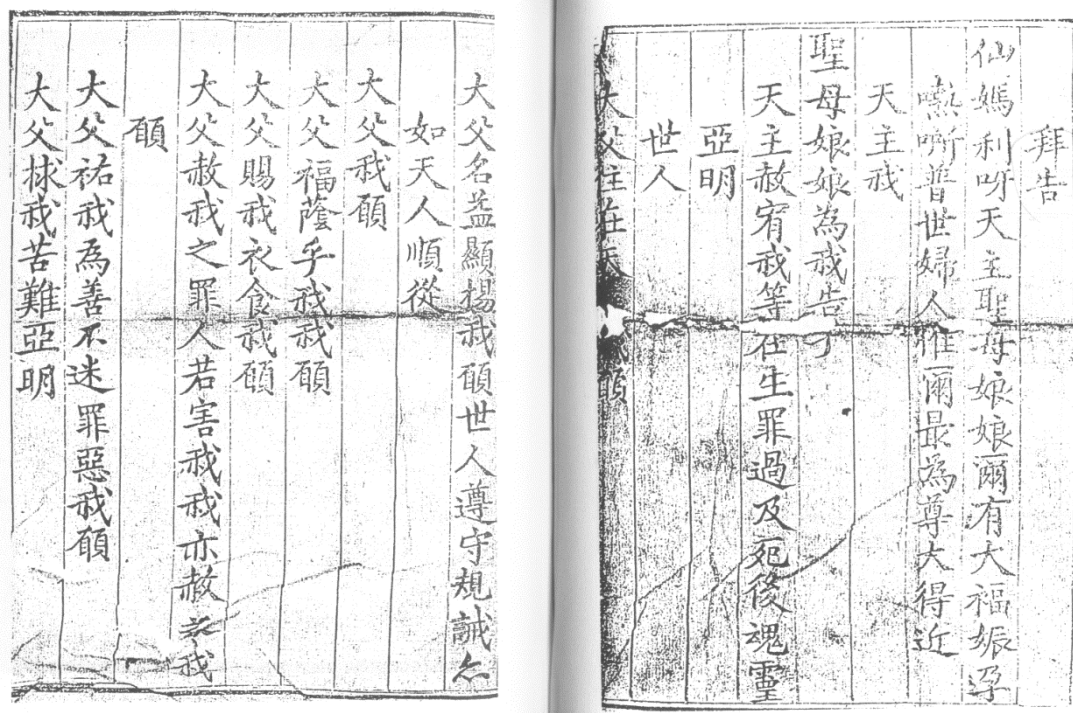 拜告
仙媽利呀天主聖母娘娘爾有大福娠孕
嘫㗭普世婦人惟爾最為尊大得近
天主我
聖母娘娘為我告于
天主赦宥我等在生罪過及死後魂靈
亞明
世人
大父住在天我願
大父名益顯揚我願世人遵守規誡亦
如天人順從
大父我願
大父福蔭乎我我願
大父賜我衣食我願
大父赦我之罪人若害我我亦赦之我
願
大父祐我為善不迷罪惡我願
大父捄我苦難亞明